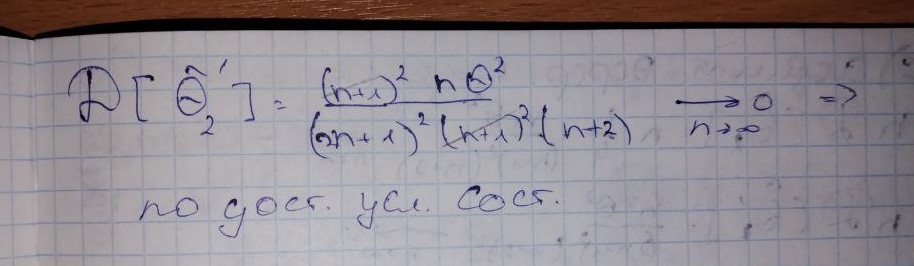 D[θ̃₂'] = (n+1)² nθ² / (2n+1)² (n+1)² (n+2) → 0 n→∞ =>
по дост. усл. сост.